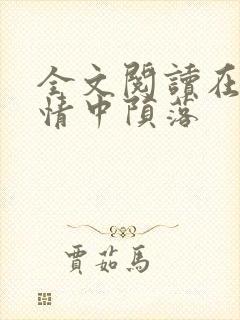 全文閱讀在
情中隕落
賈茹馬